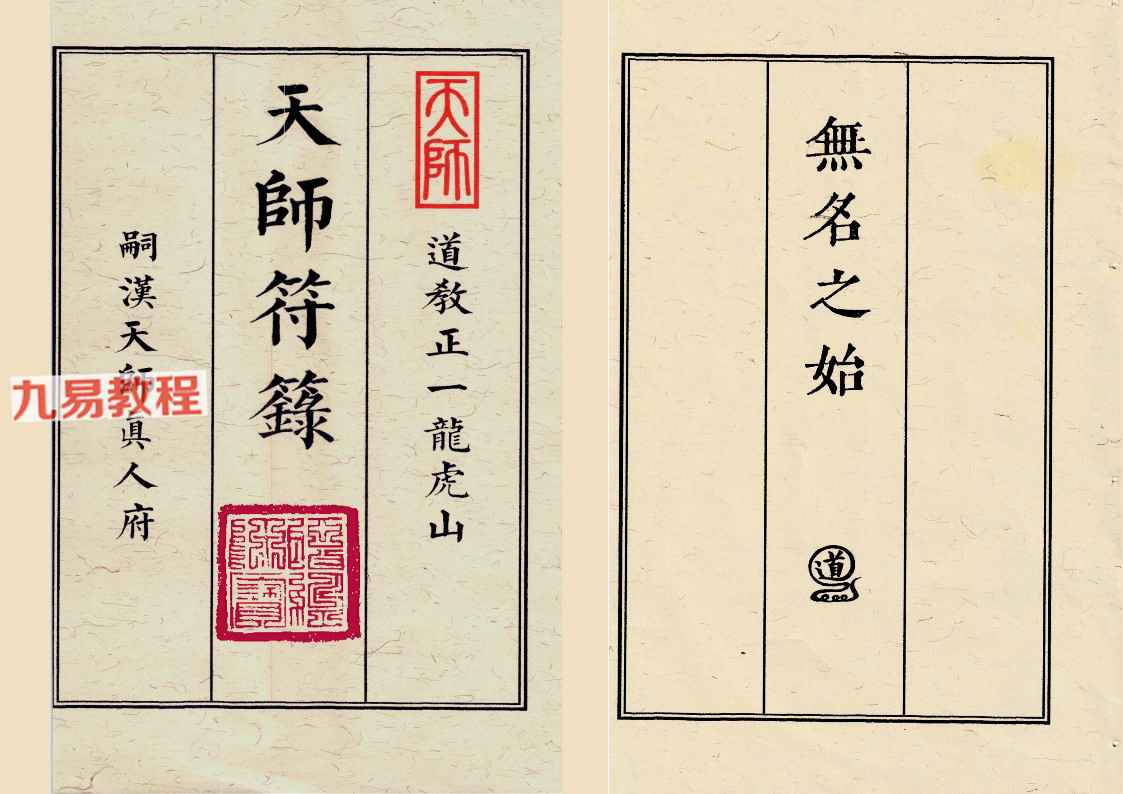 無名之始
道
天師
道敎正一龍虎山
天師符籙
嗣漢天師眞人府
九易教程